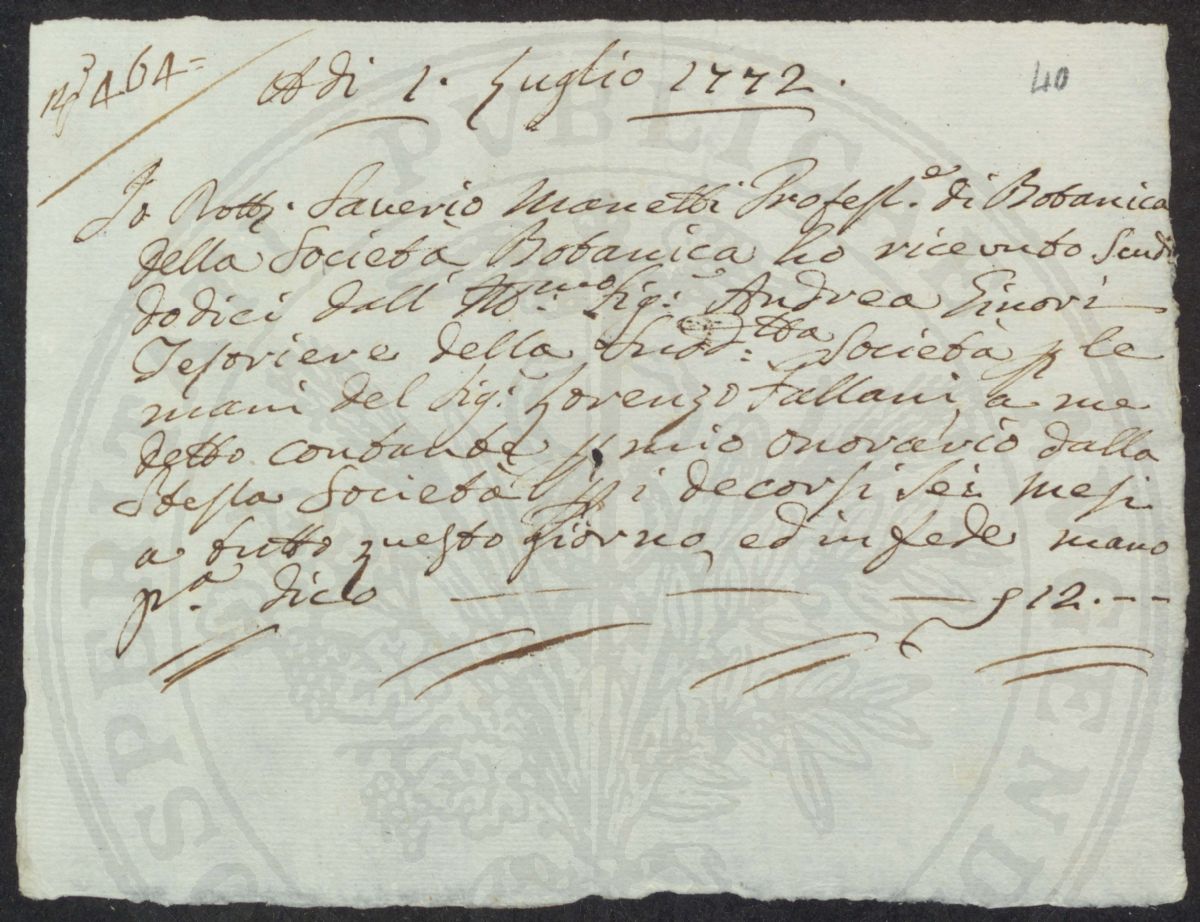 N.º 464=
Adi 1. Luglio 1772.
40
Io Dott.r Saverio Manetti Profess.e di Botanica
della Società Botanica ho ricevuto Scudi
dodici dall' Ill.mo Sig.r Andrea Ginori
Tesoriere della Sud.tta Società p le
mani del Sig.r Lorenzo Fallani, a me
detto contante p mio onorario dalla
Stessa Società p i decorsi sei mesi
a tutto questo giorno, ed in fede mano
p.a dico — — — 12.--